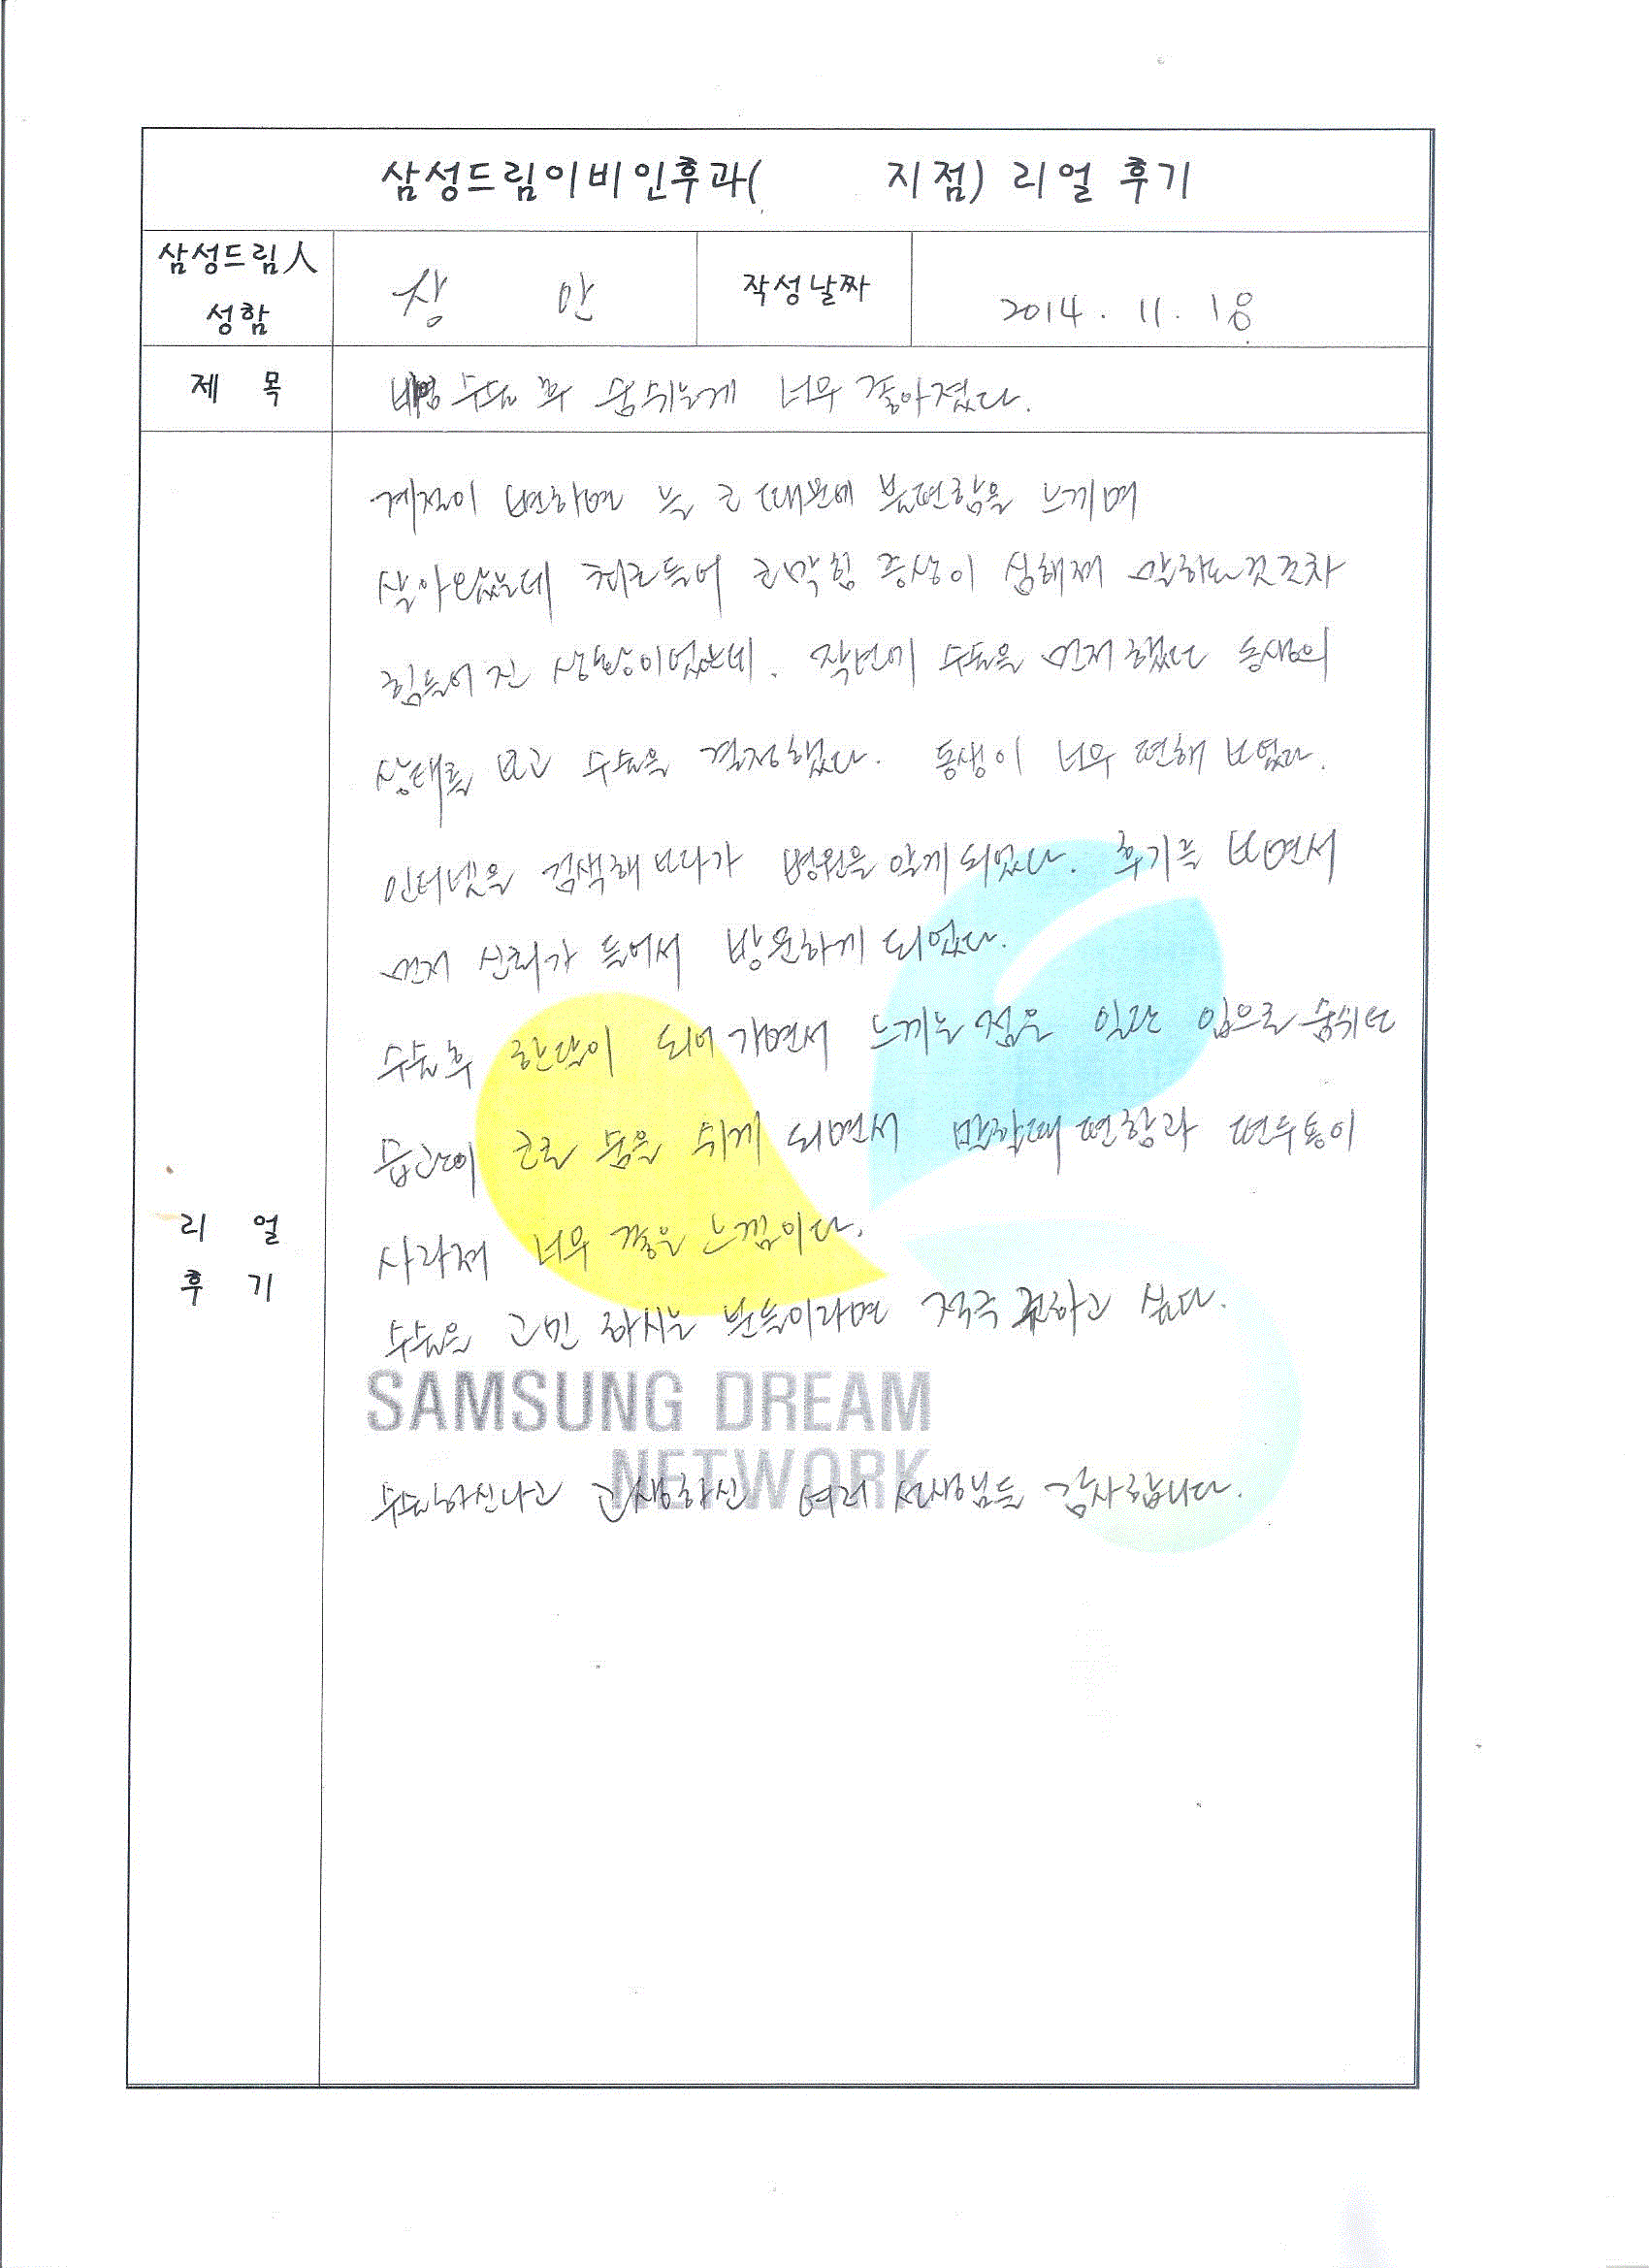 삼성드림이비인후과(      지점) 리얼 후기
삼성드림人 성함
작성날짜
2014. 11. 18
제 목
수술 후 숨쉬는게 너무 좋아졌다.
계절이 변하면 늘 코 때문에 불편함을 느끼며
살아왔는데 최근들어 코막힘 증상이 심해져 말하는것조차
힘들어 진 상황이었는데. 작년에 수술을 먼저 했던 동생의
상태를 보고 수술을 결정했다. 동생이 너무 편해 보였다.
인터넷을 검색해 보다가 병원을 알게 되었다. 후기를 보면서
먼저 신뢰가 들어서 방문하게 되었다.
수술후 한달이 되어 가면서 느끼는 점은 일단 입으로 숨쉬던
습관이 코로 숨을 쉬게 되면서 말할때 편함과 편두통이
사라져 너무 좋은 느낌이다.
수술을 고민 하시는 분들이라면 적극 권하고 싶다.
SAMSUNG DREAM
NETWORK
수술하신다고 고생하신 여러 선생님들 감사합니다.
리 얼
후 기